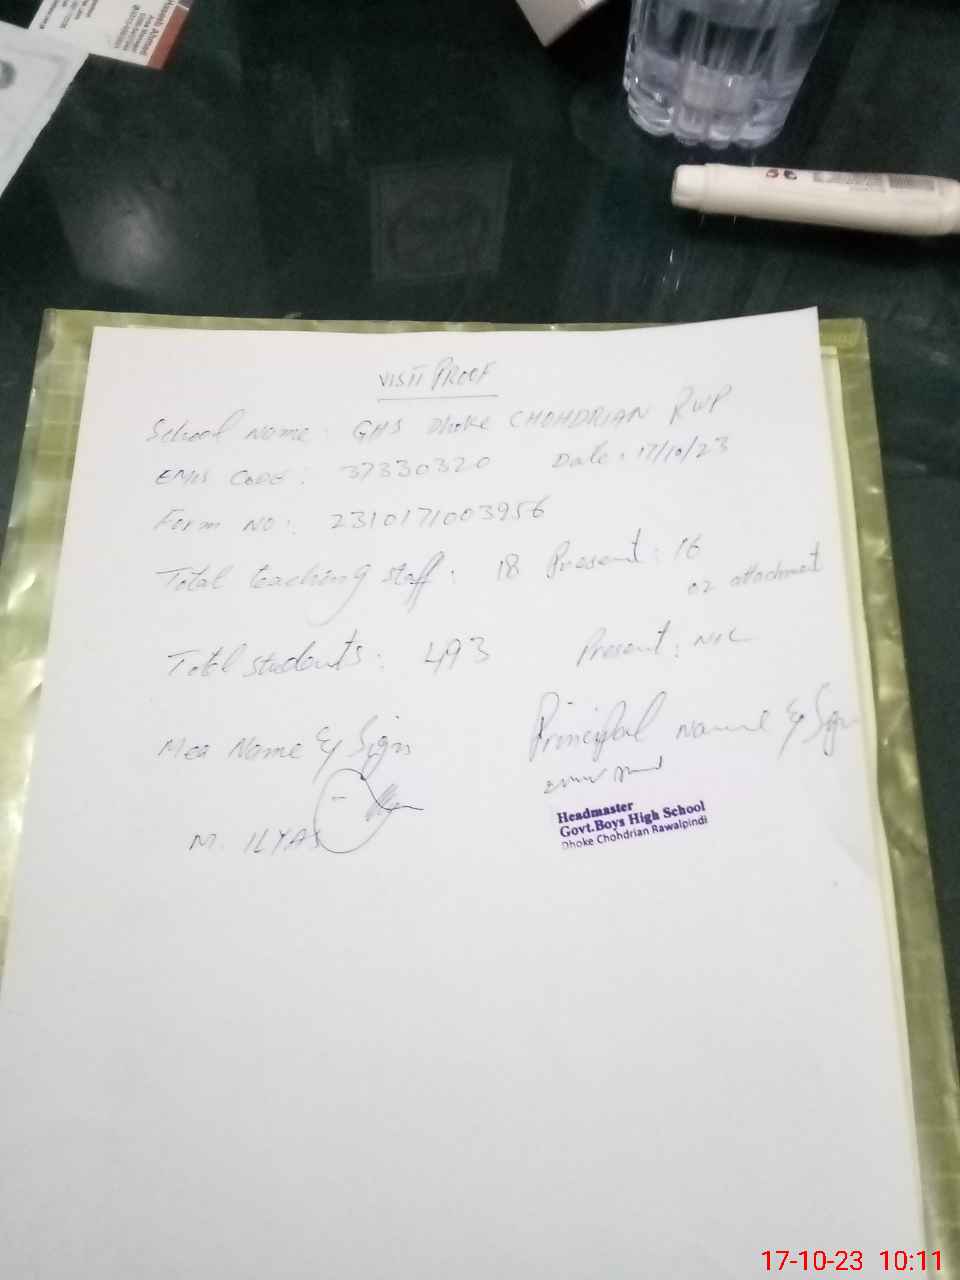 VISIT PROOF
School Name: GHS Dhoke CHOHDRIAN RWP
EMIS CODE: 37330320 Date: 17/10/23
Form NO: 2310171003956
Total teaching staff: 18 Present: 16
02 attachment
Total students: 493 Present: NIL
Mea Name & Sign Principal name & Sign
M. ILYAS
Headmaster
Govt.Boys High School
Dhoke Chohdrian Rawalpindi
17-10-23 10:11